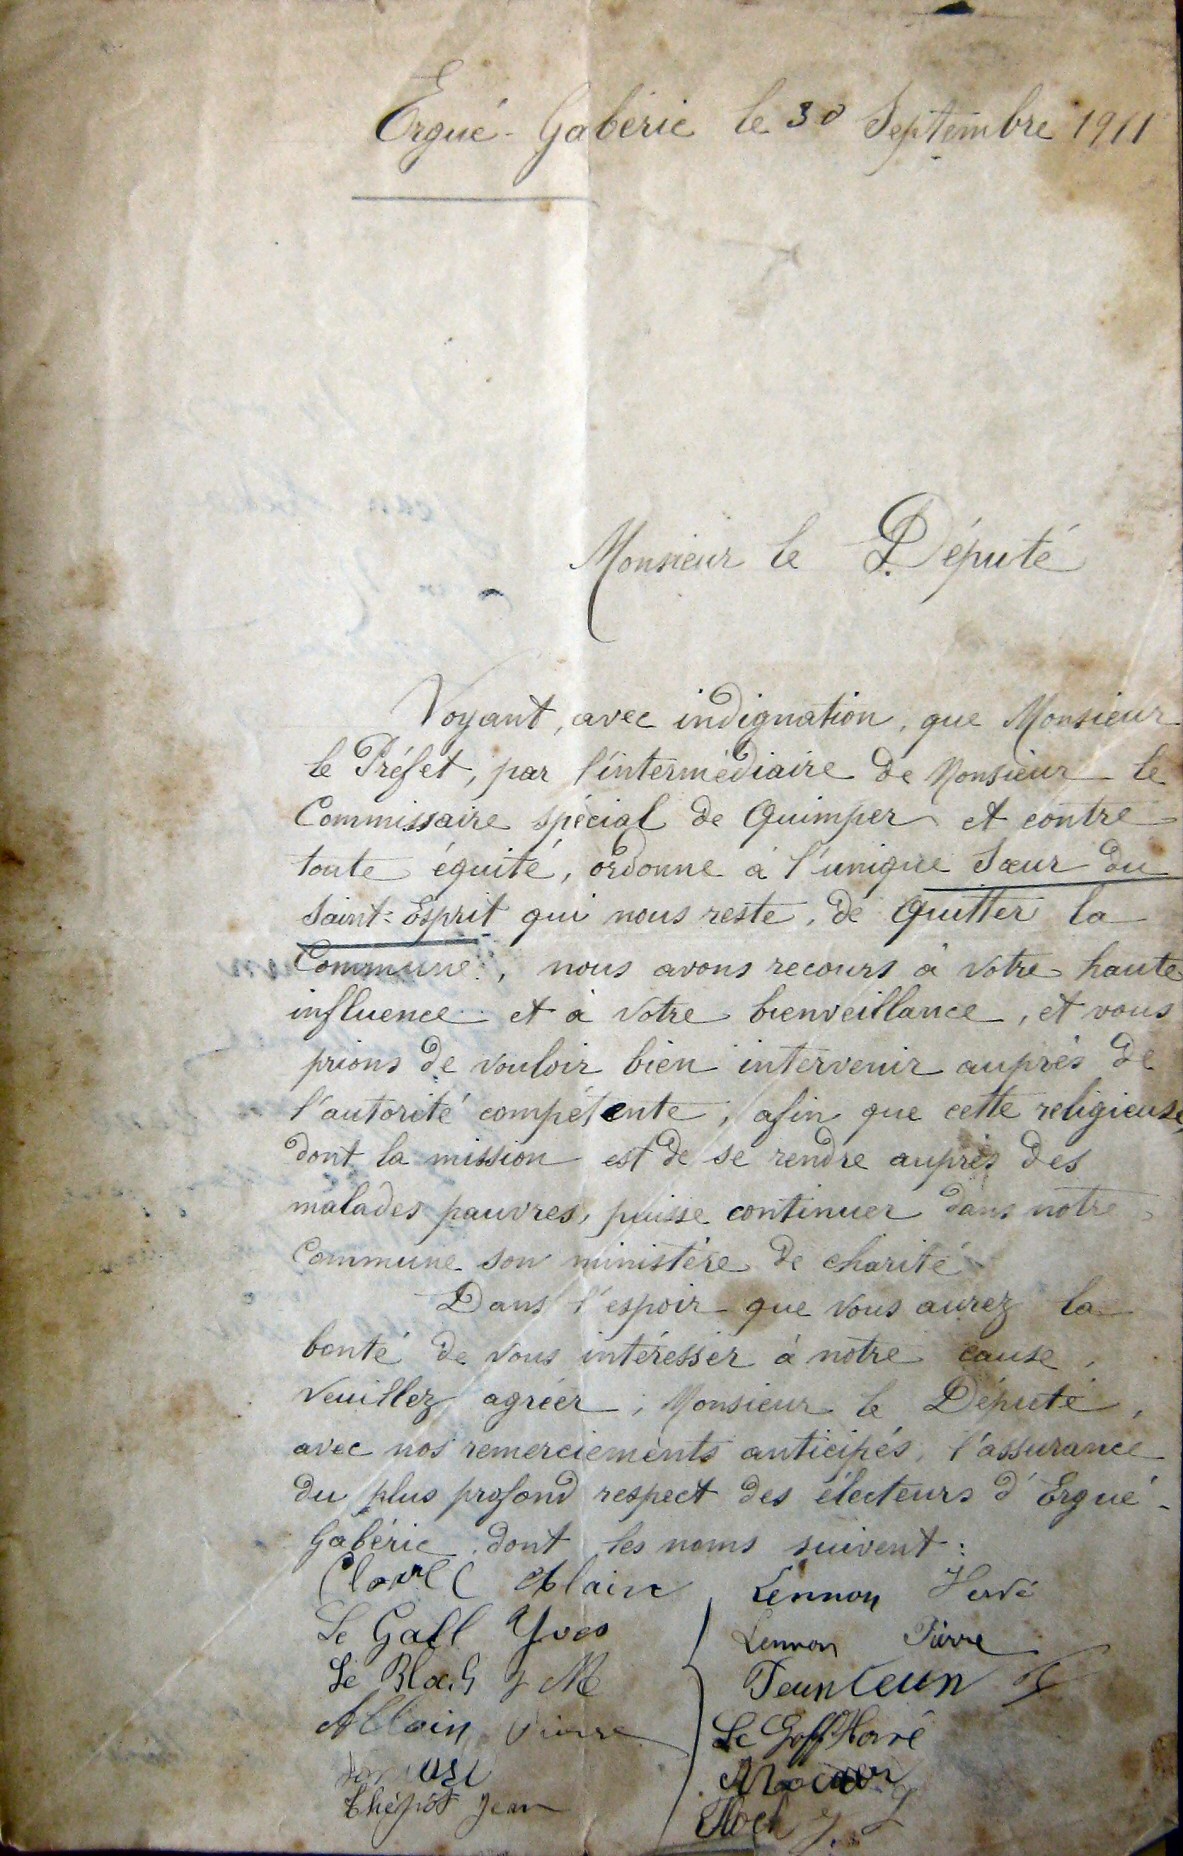 Ergué-Gabéric le 30 Septembre 1911
Monsieur le Député
Voyant, avec indignation, que Monsieur
le Préfet, par l'intermédiaire de Monsieur le
Commissaire spécial de Quimper et contre
toute équité, ordonne à l'unique Sœur du
Saint-Esprit qui nous reste, de quitter la
Commune, nous avons recours à votre haute
influence et à votre bienveillance, et vous
prions de vouloir bien intervenir auprès de
l'autorité compétente, afin que cette religieuse,
dont la mission est de se rendre auprès des
malades pauvres, puisse continuer dans notre
Commune son ministère de charité
Dans l'espoir que vous aurez la
bonté de vous intéresser à notre cause,
Veuillez agréer, Monsieur le Député,
avec nos remerciements anticipés, l'assurance
du plus profond respect des électeurs d'Ergué-
Gabéric dont les noms suivent :
Alain Lennon Hervé
Le Gall Yves Lennon Pierre
Le J M
Allain Pierre Le Goff Hervé
Thépot Jean